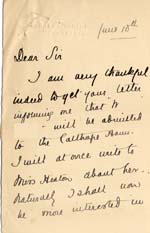 June 10th
Dear Sir
I am very thankful
indeed to get your letter
informing me that
will be admitted
to the Calthorpe Home.
I will at once write to
Miss Heaton about her.
Naturally I shall now
be more interested in